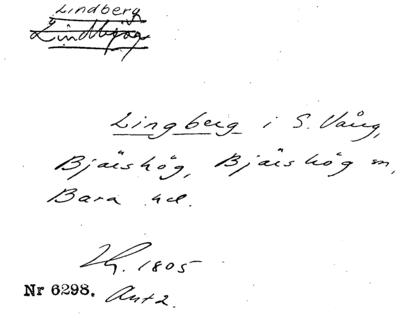 Lindberg
Lindbjög
Lingberg i S. Vång,
Bjäishög, Bjäishög m,
Bara hd.
1805
Nr 6298. Ant 2.